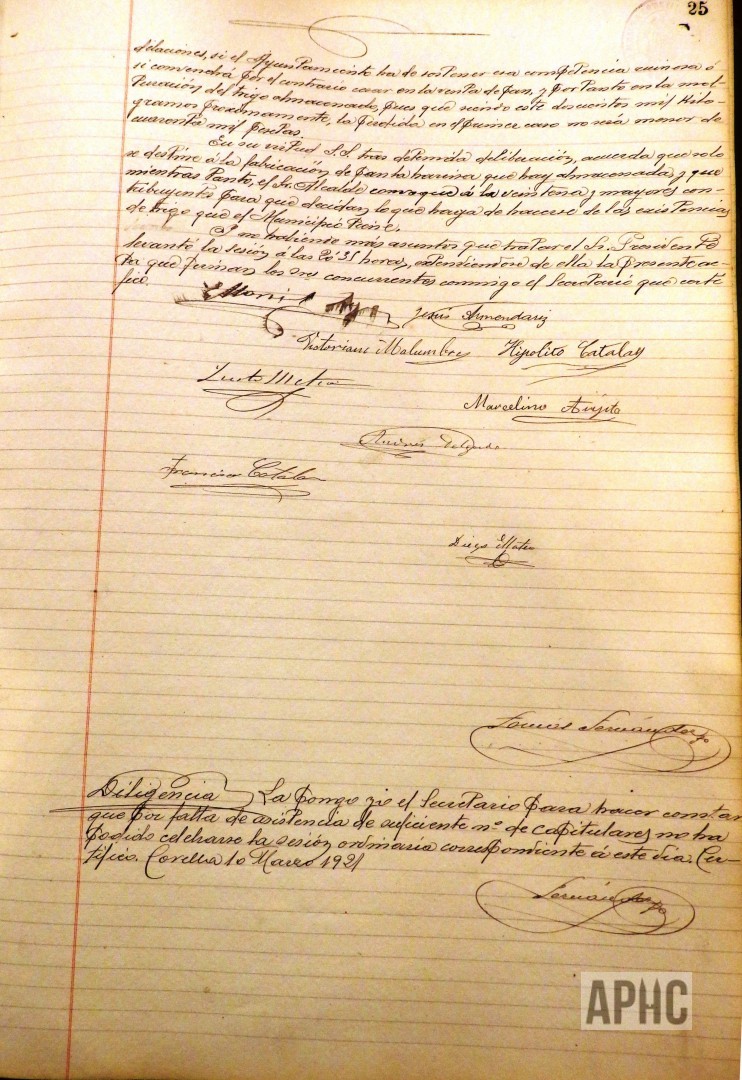 25
dilaciones, si el Ayuntamiento ha de sostener esa competencia ruinosa ó
si convendrá por el contrario cesar en la venta de pan, y por tanto en la mol-
turación del trigo almacenado, pues que siendo este doscientos mil kilo-
gramos proximamente, la perdida en el primer caso no será menor de
cuarenta mil pesetas.
En su virtud S.S. tras detenida deliberación, acuerda que solo
se destine á la fabricación de pan la harina que hay almacenada, y que
mientras tanto, el Sr. Alcalde convoque á la veintena y mayores con-
tribuyentes para que decidan lo que haya de hacerse de las existencias
de trigo que el Municipio tiene.
Y no habiendo más asuntos que tratar el Sr. Presidente
levantó la sesión á las 20'35 horas, extendiendose de ella la presente ac-
ta que firman los Sres concurrentes conmigo el Secretario que certi-
fico.
Jesús Armendariz
Victoriano Malumbres Hipolito Catalan
Justo Mateo
Marcelino
Delgado
Francisco Catalan
Diego Mateo
Fernández
Diligencia La pongo yo el Secretario para hacer constar
que por falta de asistencia de suficiente nº de capitulares no ha
podido celebrarse la sesión ordinaria correspondiente á este dia. Cer-
tifico. Corella 10 Marzo 1921
Fernández
APHC